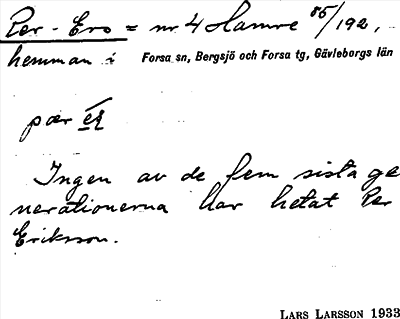 Per-Ers = nr 4 Hamre 85/192,
hemman i Forsa sn, Bergsjö och Forsa tg, Gävleborgs län
pær éṣ
Ingen av de fem sista ge
nerationerna har hetat Per
Eriksson.
LARS LARSSON 1933